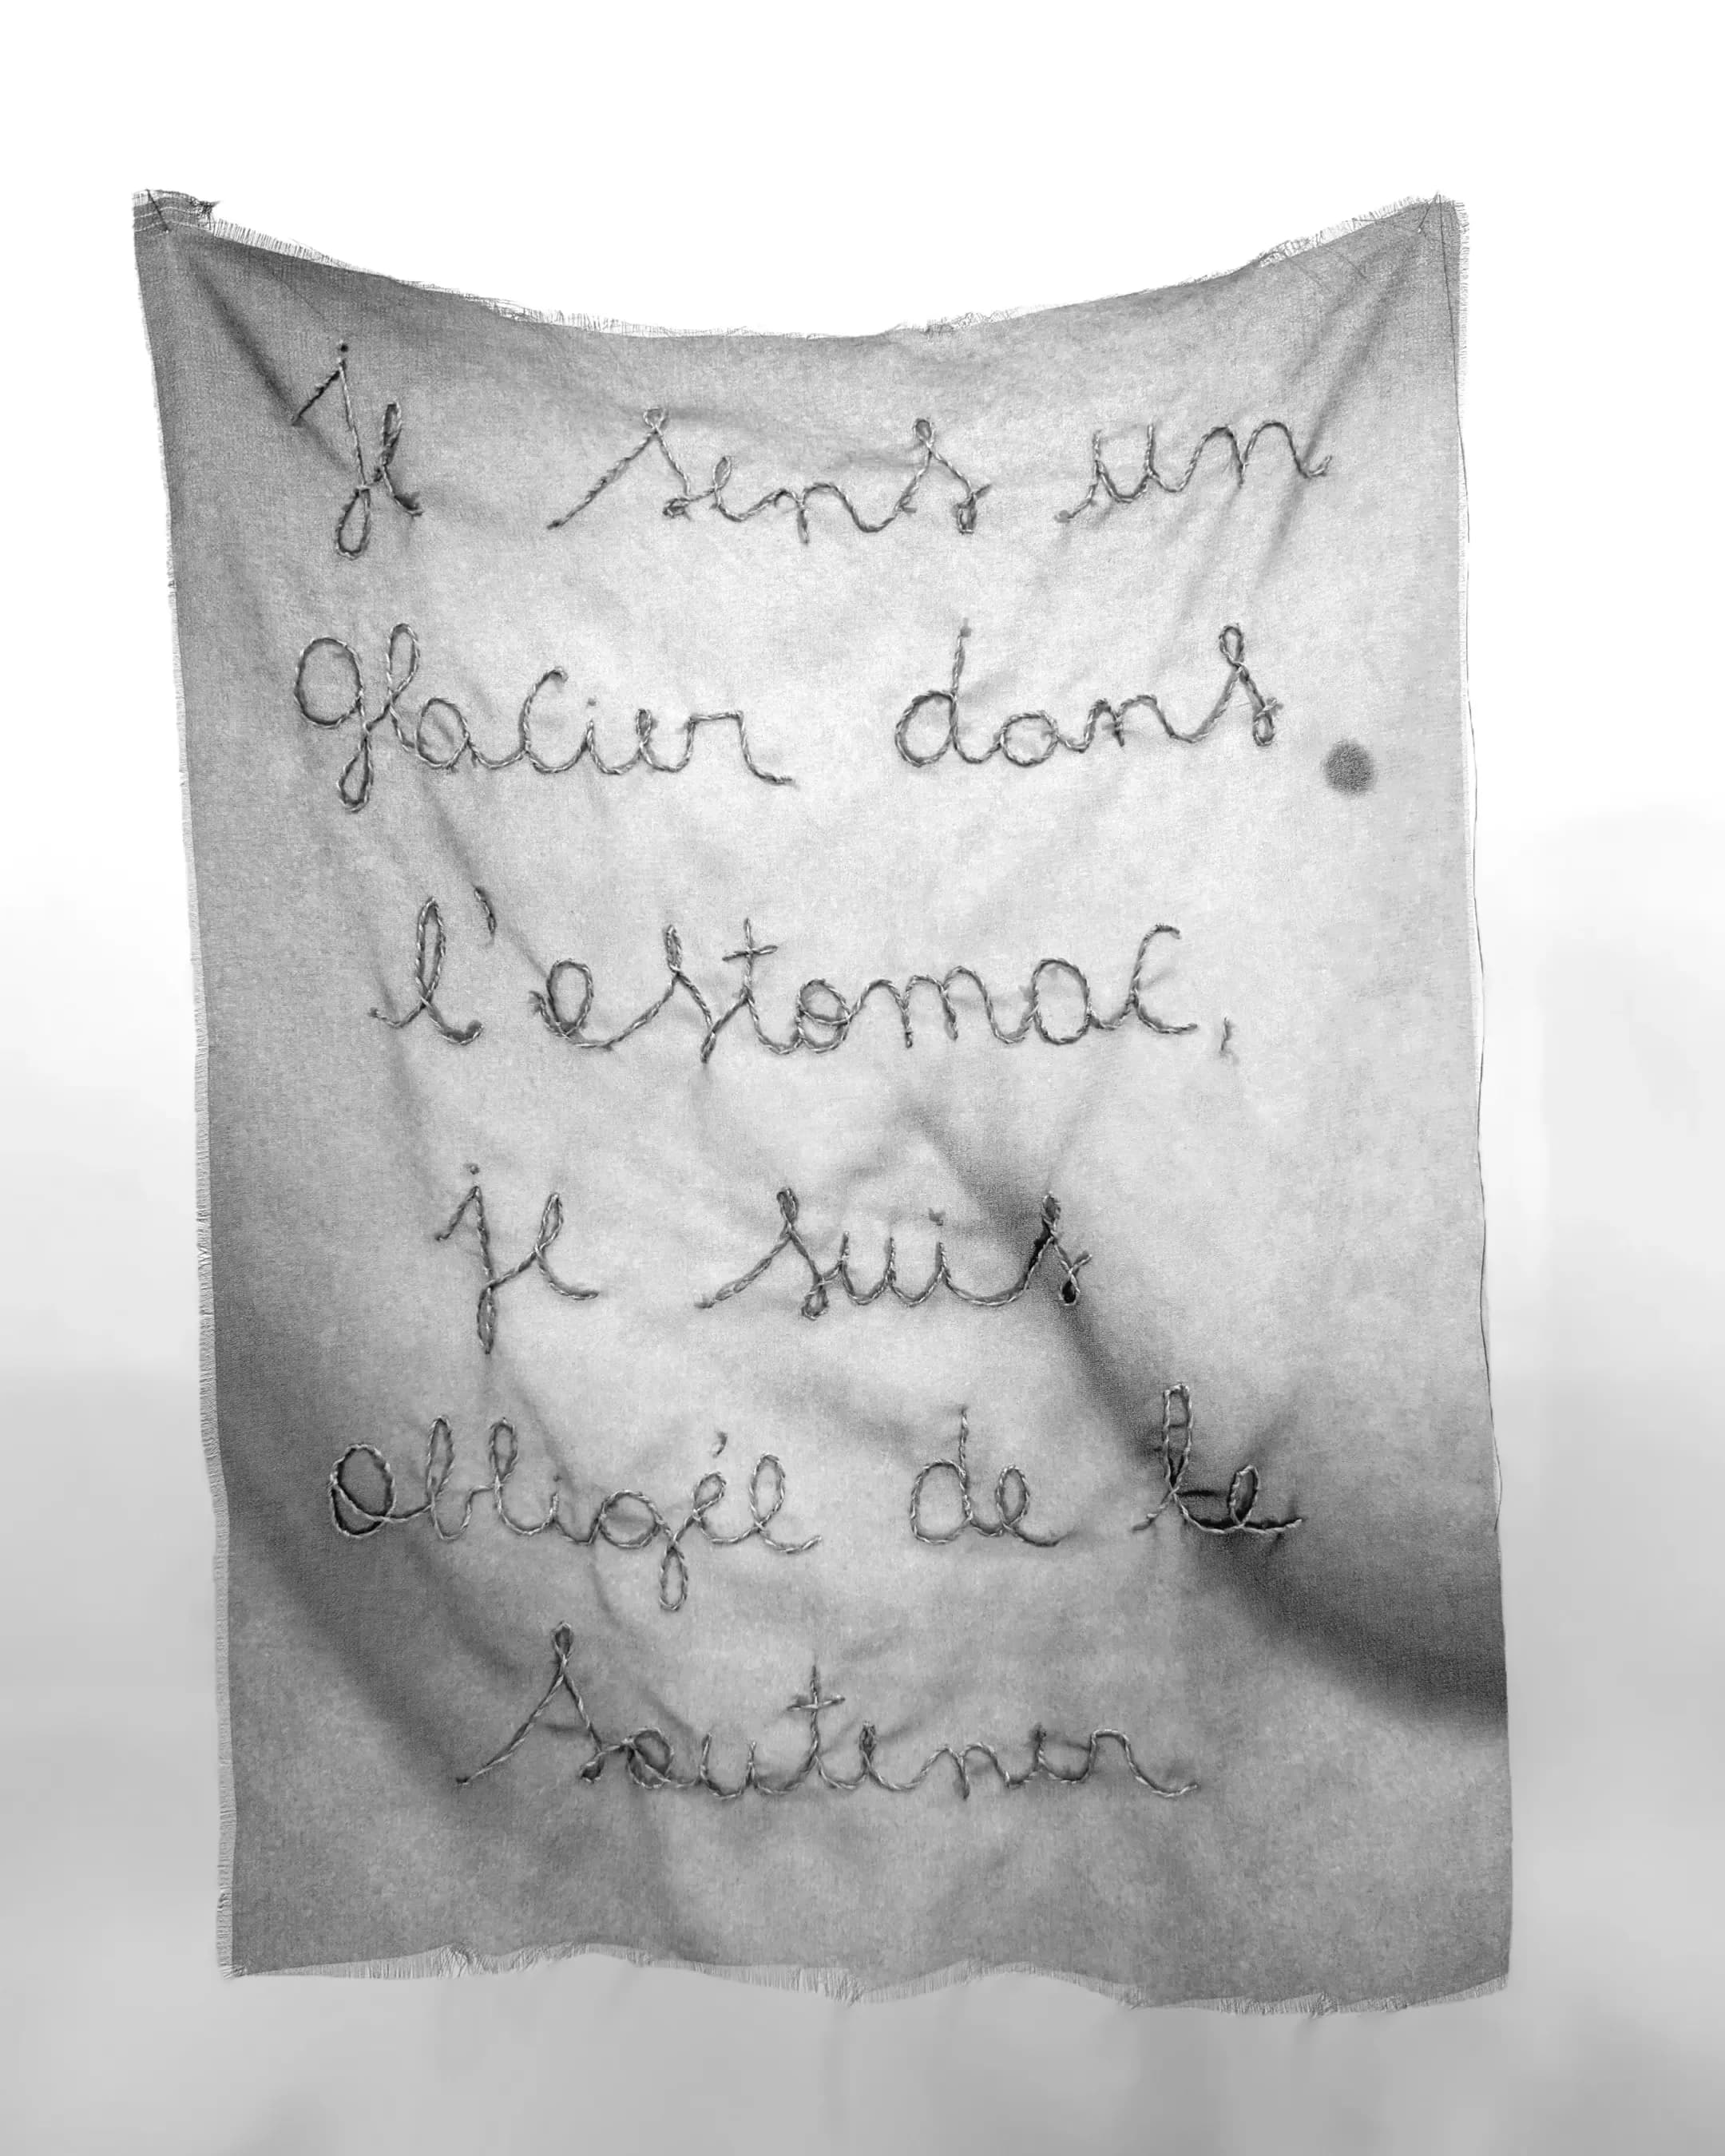 Je sens un
glacier dans
l'estomac,
je suis
obligée de te
soutenir